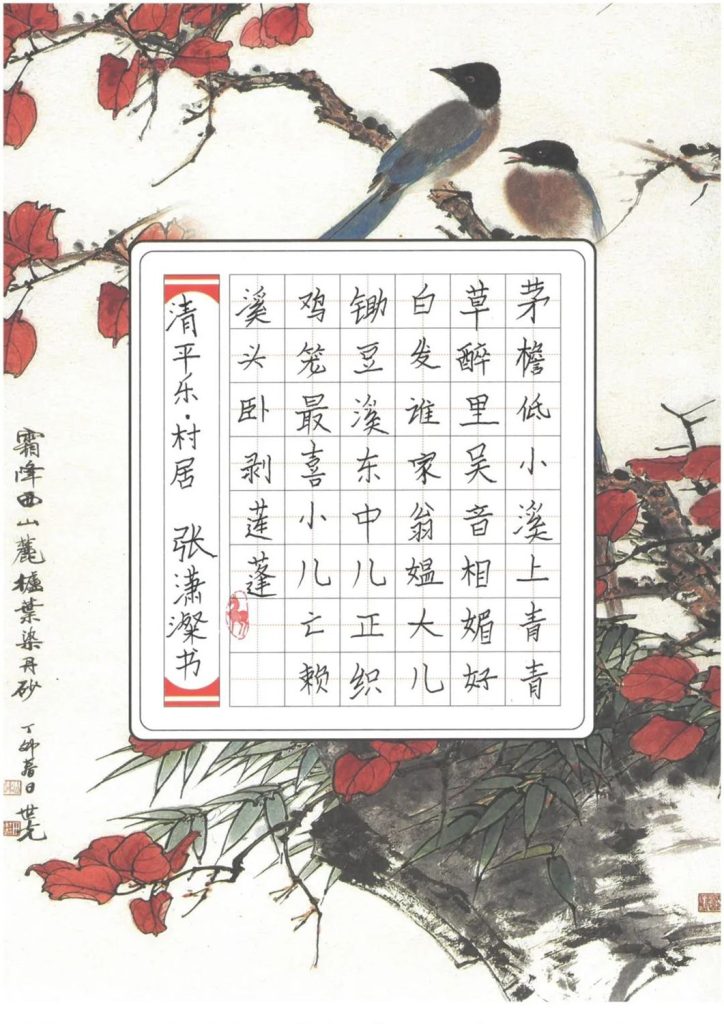 茅檐低小溪上青青
草醉里吴音相媚好
白发谁家翁媪大儿
锄豆溪东中儿正织
鸡笼最喜小儿亡赖
溪头卧剥莲蓬
清平乐·村居 张潇灿书
霜降西山麓 櫨葉染丹砂 丁卯春日 世光